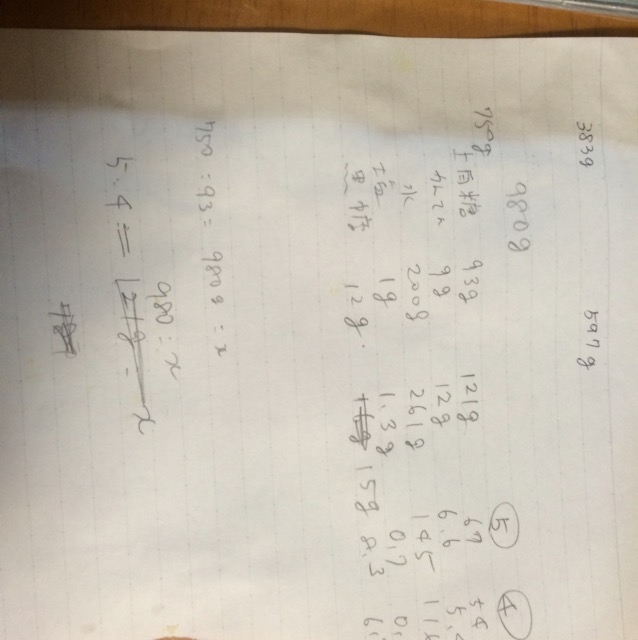 383g 597g
980g ⑤ ④
750g
上白糖 93g 121g 67 54
9g 12g 6.6 5.
水 200g 261g 145 11
塩 1g 1.3g 0.7 0.
黒糖 12g 15g 8.3 6.
750:93=980g:x
5:4=